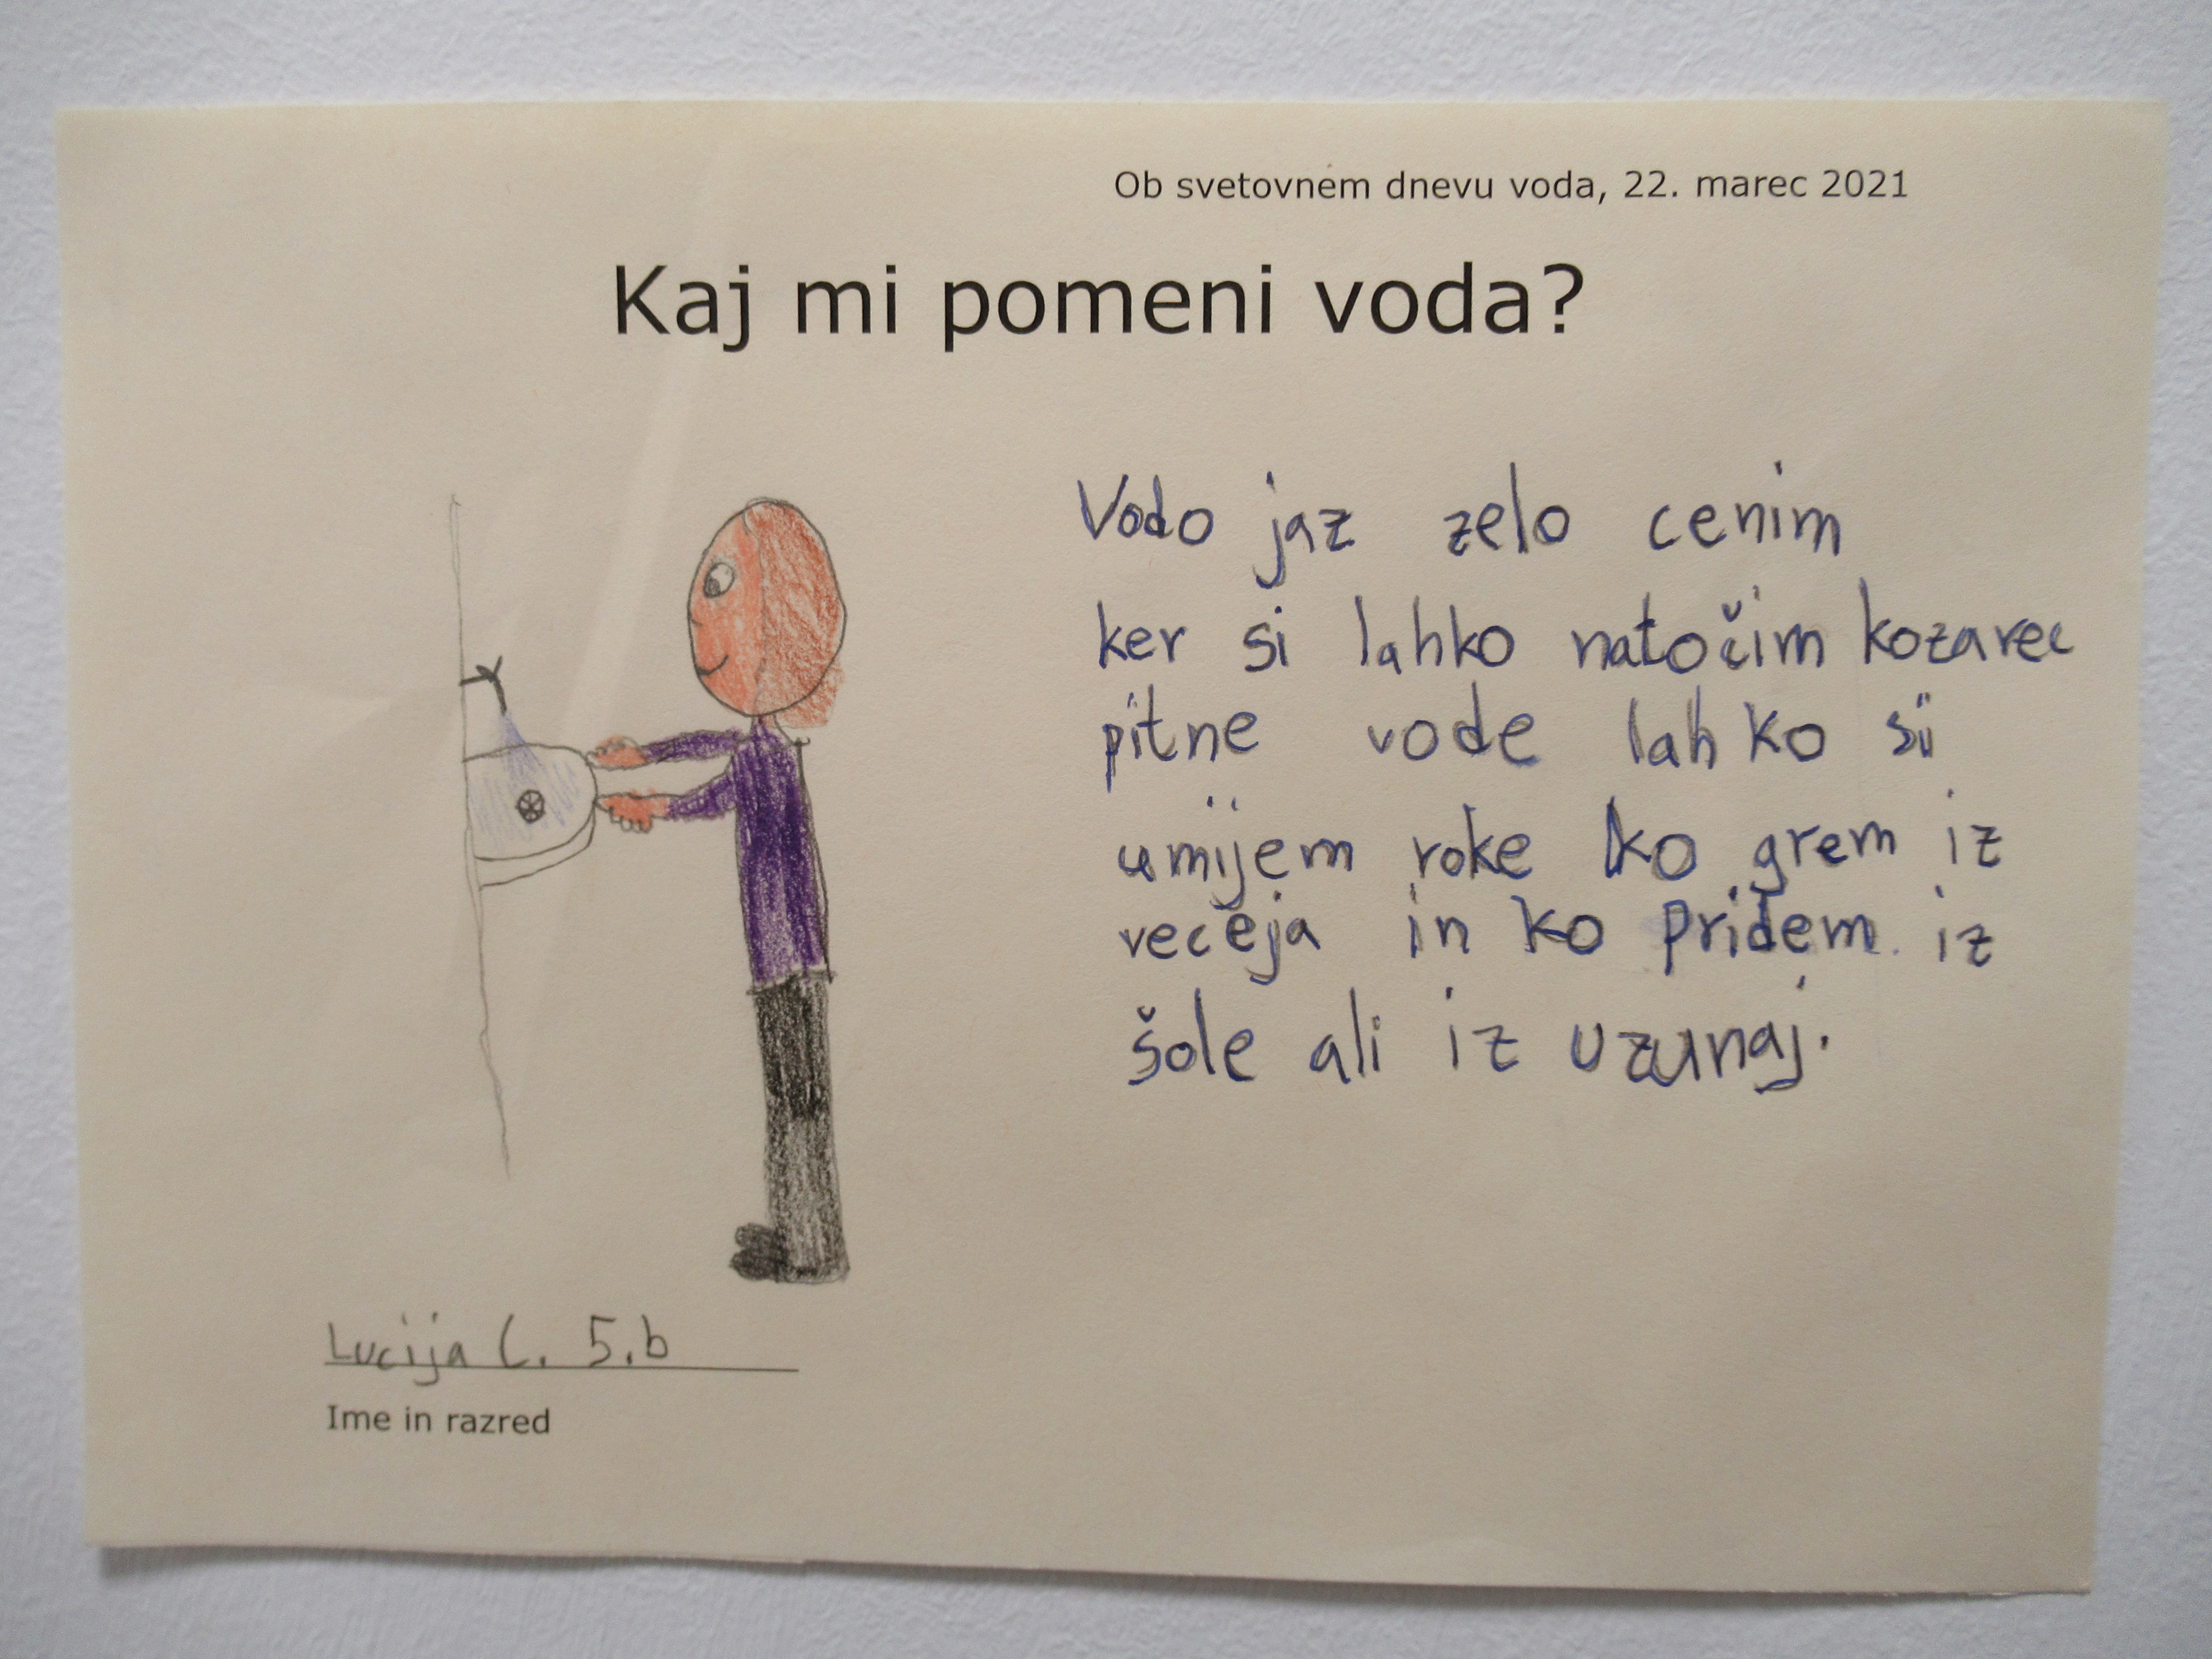 Ob svetovnem dnevu voda, 22. marec 2021
Kaj mi pomeni voda?
Vodo jaz zelo cenim
ker si lahko natočim kozarec
pitne vode lahko si
umijem roke ko grem iz
veceja in ko pridem iz
šole ali iz uzunaj.
Lucija C. 5.b
Ime in razred